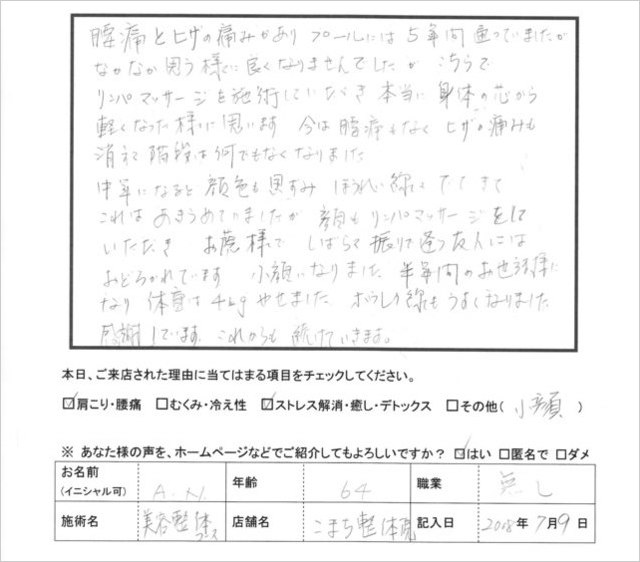 腰痛とヒザの痛みがあり プールには5年間通っていましたが
なかなか思う様に良くなりませんでしたが こちらで
リンパマッサージを施術していただき 本当に 身体の芯から
軽くなった様に思います 今は腰痛もなく ヒザの痛みも
消えて 階段は何でもなくなりました
中年になると 顔色も黒ずみ ほうれい線も でてきて
これはあきらめていましたが 顔もリンパマッサージをして
いただき お蔭様で しばらく振りで逢う友人には
おどろかれています 小顔になりました 半年間のお世話様に
なり 体重は4kgやせました ホウレイ線もうすくなりました
感謝しています これからも 続けていきます。
本日、ご来店された理由に当てはまる項目をチェックしてください。
☑肩こり・腰痛 □むくみ・冷え性 ☑ストレス解消・癒し・デトックス □その他( 小顔 )
※ あなた様の声を、ホームページなどでご紹介してもよろしいですか? ☑はい □匿名で □ダメ
お名前 (イニシャル可) 年齢 64 職業 無し
施術名 美容整体コース 店舗名 こまち整体院 記入日 2018年 7月 9日